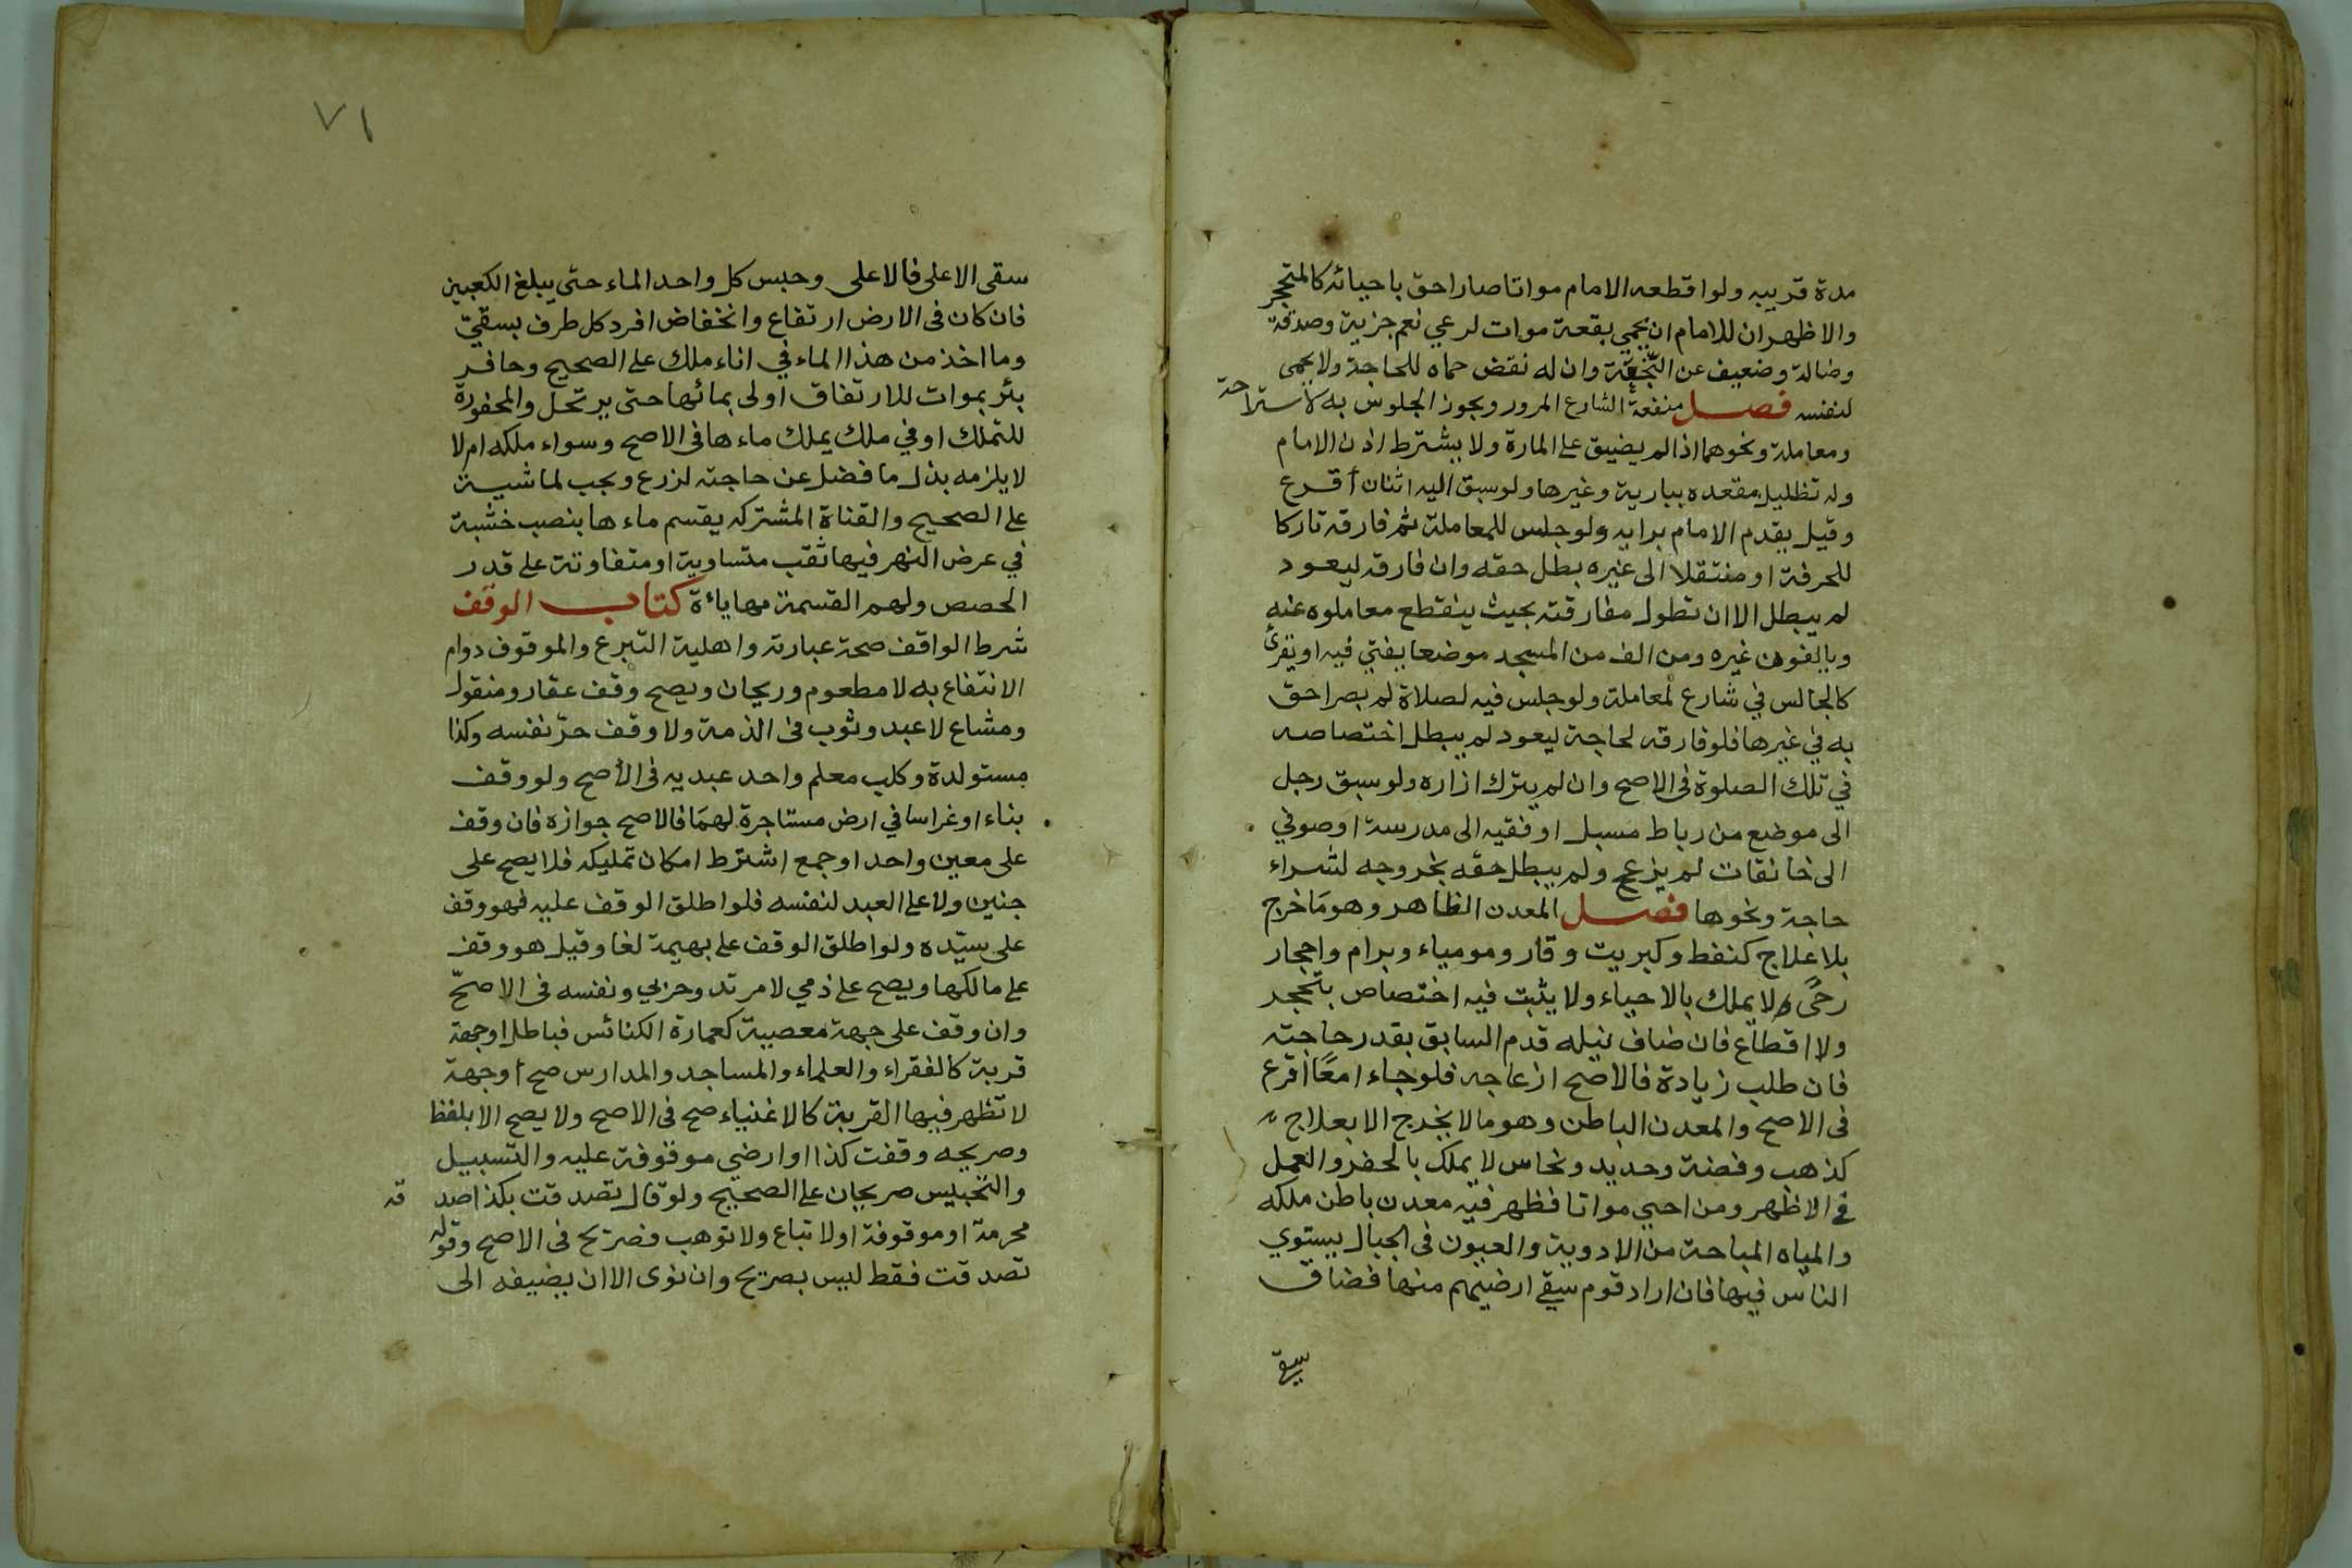 مدة قريبه ولو اقطعه الامام مواتا صار احق باحيائه كالمتحجر
والاظهر ان للامام ان يحمي بقعة موات لرعي نعم جزية وصدقة
وضالة وضعيف عن النجعة وان له نقض حماه للحاجة ولا يحمى
لنفسه فصل منفعة الشارع المرور ويجوز الجلوس به لاستراحة
ومعاملة ونحوهما اذا لم يضيق على المارة ولا يشترط اذن الامام
وله تظليل مقعده ببارية وغيرها ولو سبق اليه اثنان أقرع
وقيل يقدم الامام برايه ولو جلس للمعاملة ثم فارقه تاركا
للحرفة او منتقلا الى غيره بطل حقه وان فارقه ليعود
لم يبطل الا ان تطول مفارقته بحيث ينقطع معاملوه عنه
ويالفون غيره ومن الف من المسجد موضعا يفتي فيه او يقرئ
كالجالس في شارع لمعاملة ولو جلس فيه لصلاة لم يصر احق
به في غيرها فلو فارقه لحاجة ليعود لم يبطل اختصاصه
في تلك الصلوة فى الاصح وان لم يترك ازاره ولو سبق رجل
الى موضع من رباط مسبل او فقيه الى مدرسة او صوفي
الى خانقات لم يزعج ولم يبطل حقه بخروجه لشراء
حاجة ونحوها فصل المعدن الظاهر وهو مَا خرج
بلا علاج كنفط وكبريت وقار ومومياء وبرام واحجار
رحًى لا يملك بالاحياء ولا يثبت فيه اختصاص بتحجر
ولا اقطاع فان ضاف نيله قدم السابق بقدر حاجته
فان طلب زيادة فالاصح ازعاجه فلو جاء امعًا اقرع
فى الاصح والمعدن الباطن وهو مالا يخرج الا بعلاج
كذهب وفضة وحديد ونحاس لا يملك بالحفر والعمل
في الاظهر ومن احيي مواتا فظهر فيه معدن باطن ملكه
والمياه المباحة من الاودية والعيون فى الجبال يستوي
الناس فيها فان اراد قوم سقي ارضيهم منها فضاق
سقى
٧١
سقى الاعلى فالاعلى وحبس كل واحد الماء حتى يبلغ الكعبين
فان كان فى الارض ارتفاع وانخفاض افرد كل طرف بسقيّ
وما اخذ من هذا الماء في اناء ملك على الصحيح وحافر
بئر بموات للارتفاق اولى بمائها حتى يرتحل والمحفورة
للتملك او في ملك يملك ماءها فى الاصح وسواء ملكه ام لا
لا يلزمه بذل ما فضل عن حاجته لزرع ويجب لماشية
على الصحيح والقناة المشتركه يقسم ماءها بنصب خشبة
في عرض النهر فيها ثقب متساوية او متفاوتة على قدر
الحصص ولهم القسمة مهاياءة كتاب الوقف
شرط الواقف صحة عبارته واهلية التبرع والموقوف دوام
الانتفاع به لا مطعوم وريحان ويصح وقف عقار ومنقول
ومشاع لا عبد وثوب فى الذمة ولا وقف حرّ نفسه وكذا
مستولدة وكلب معلم واحد عبديه فى الأصح ولو وقف
بناء او غراسا في ارض مستاجرة لهمَا فالاصح جوازه فان وقف
على معين واحد او جمع اشترط امكان تمليكه فلا يصح على
جنين ولا على العبد لنفسه فلو اطلق الوقف عليه فهو وقف
على سيّده ولو اطلق الوقف على بهيمة لغا وقيل هو وقف
على مالكها ويصح على ذمي لا مرتد وحربي ونفسه فى الاصحّ
وان وقف على جهة معصية كعمارة الكنائس فباطل او جهة
قربة كالفقراء والعلماء والمساجد والمدارس صح أو جهة
لا تظهر فيها القربة كالاغنياء صح فى الاصح ولا يصح الا بلفظ
وصريحه وقفت كذا او ارضي موقوفة عليه والتسبيل
والتحبيس صريحان على الصحيح ولو قال تصدقت بكذا صدقة
محرمة او موقوفة او لا تباع ولا توهب فصريح فى الاصح وقوله
تصدقت فقط ليس بصريح وان نوى الا ان يضيفه الى